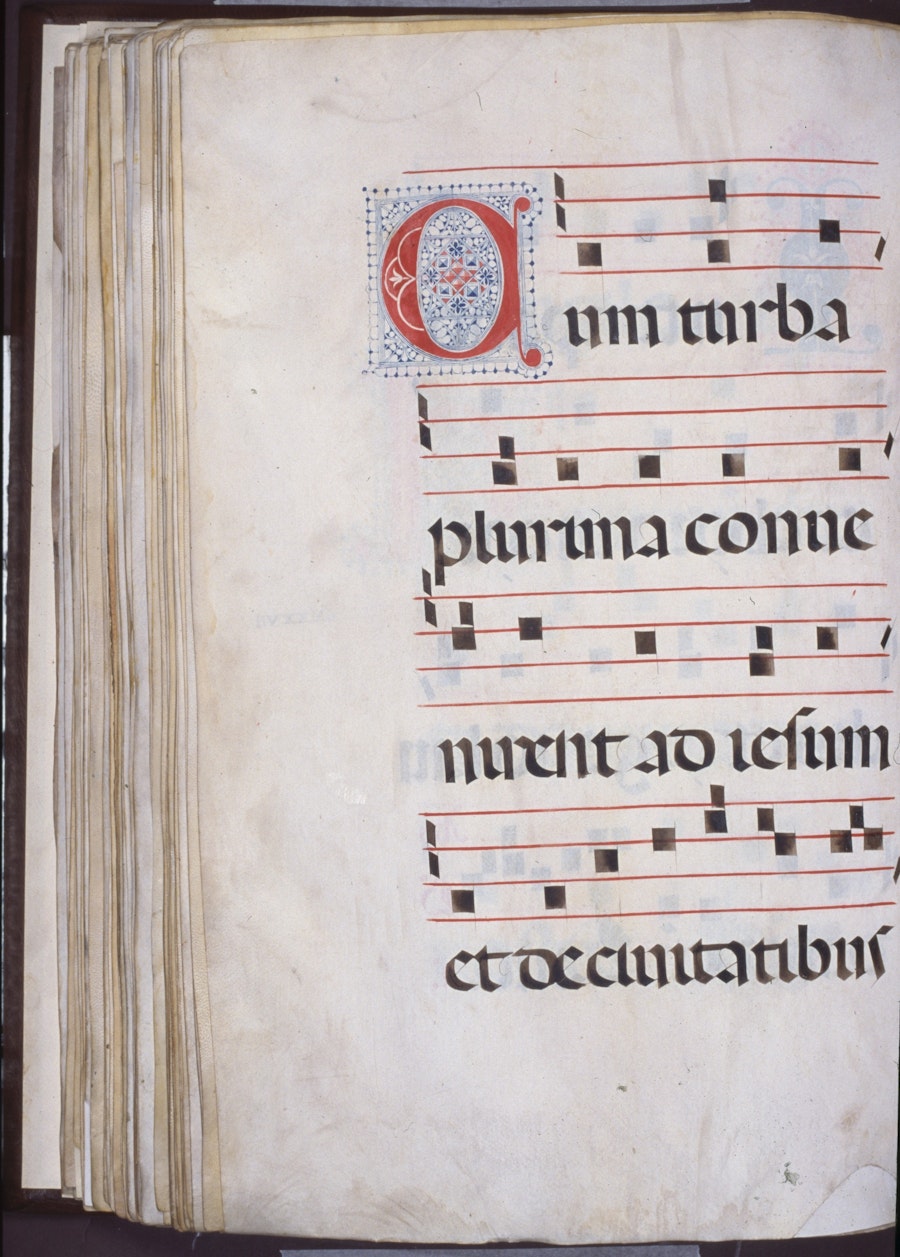 Cum turba
plurima conue
nirent ad iesum
et de ciuitatibus